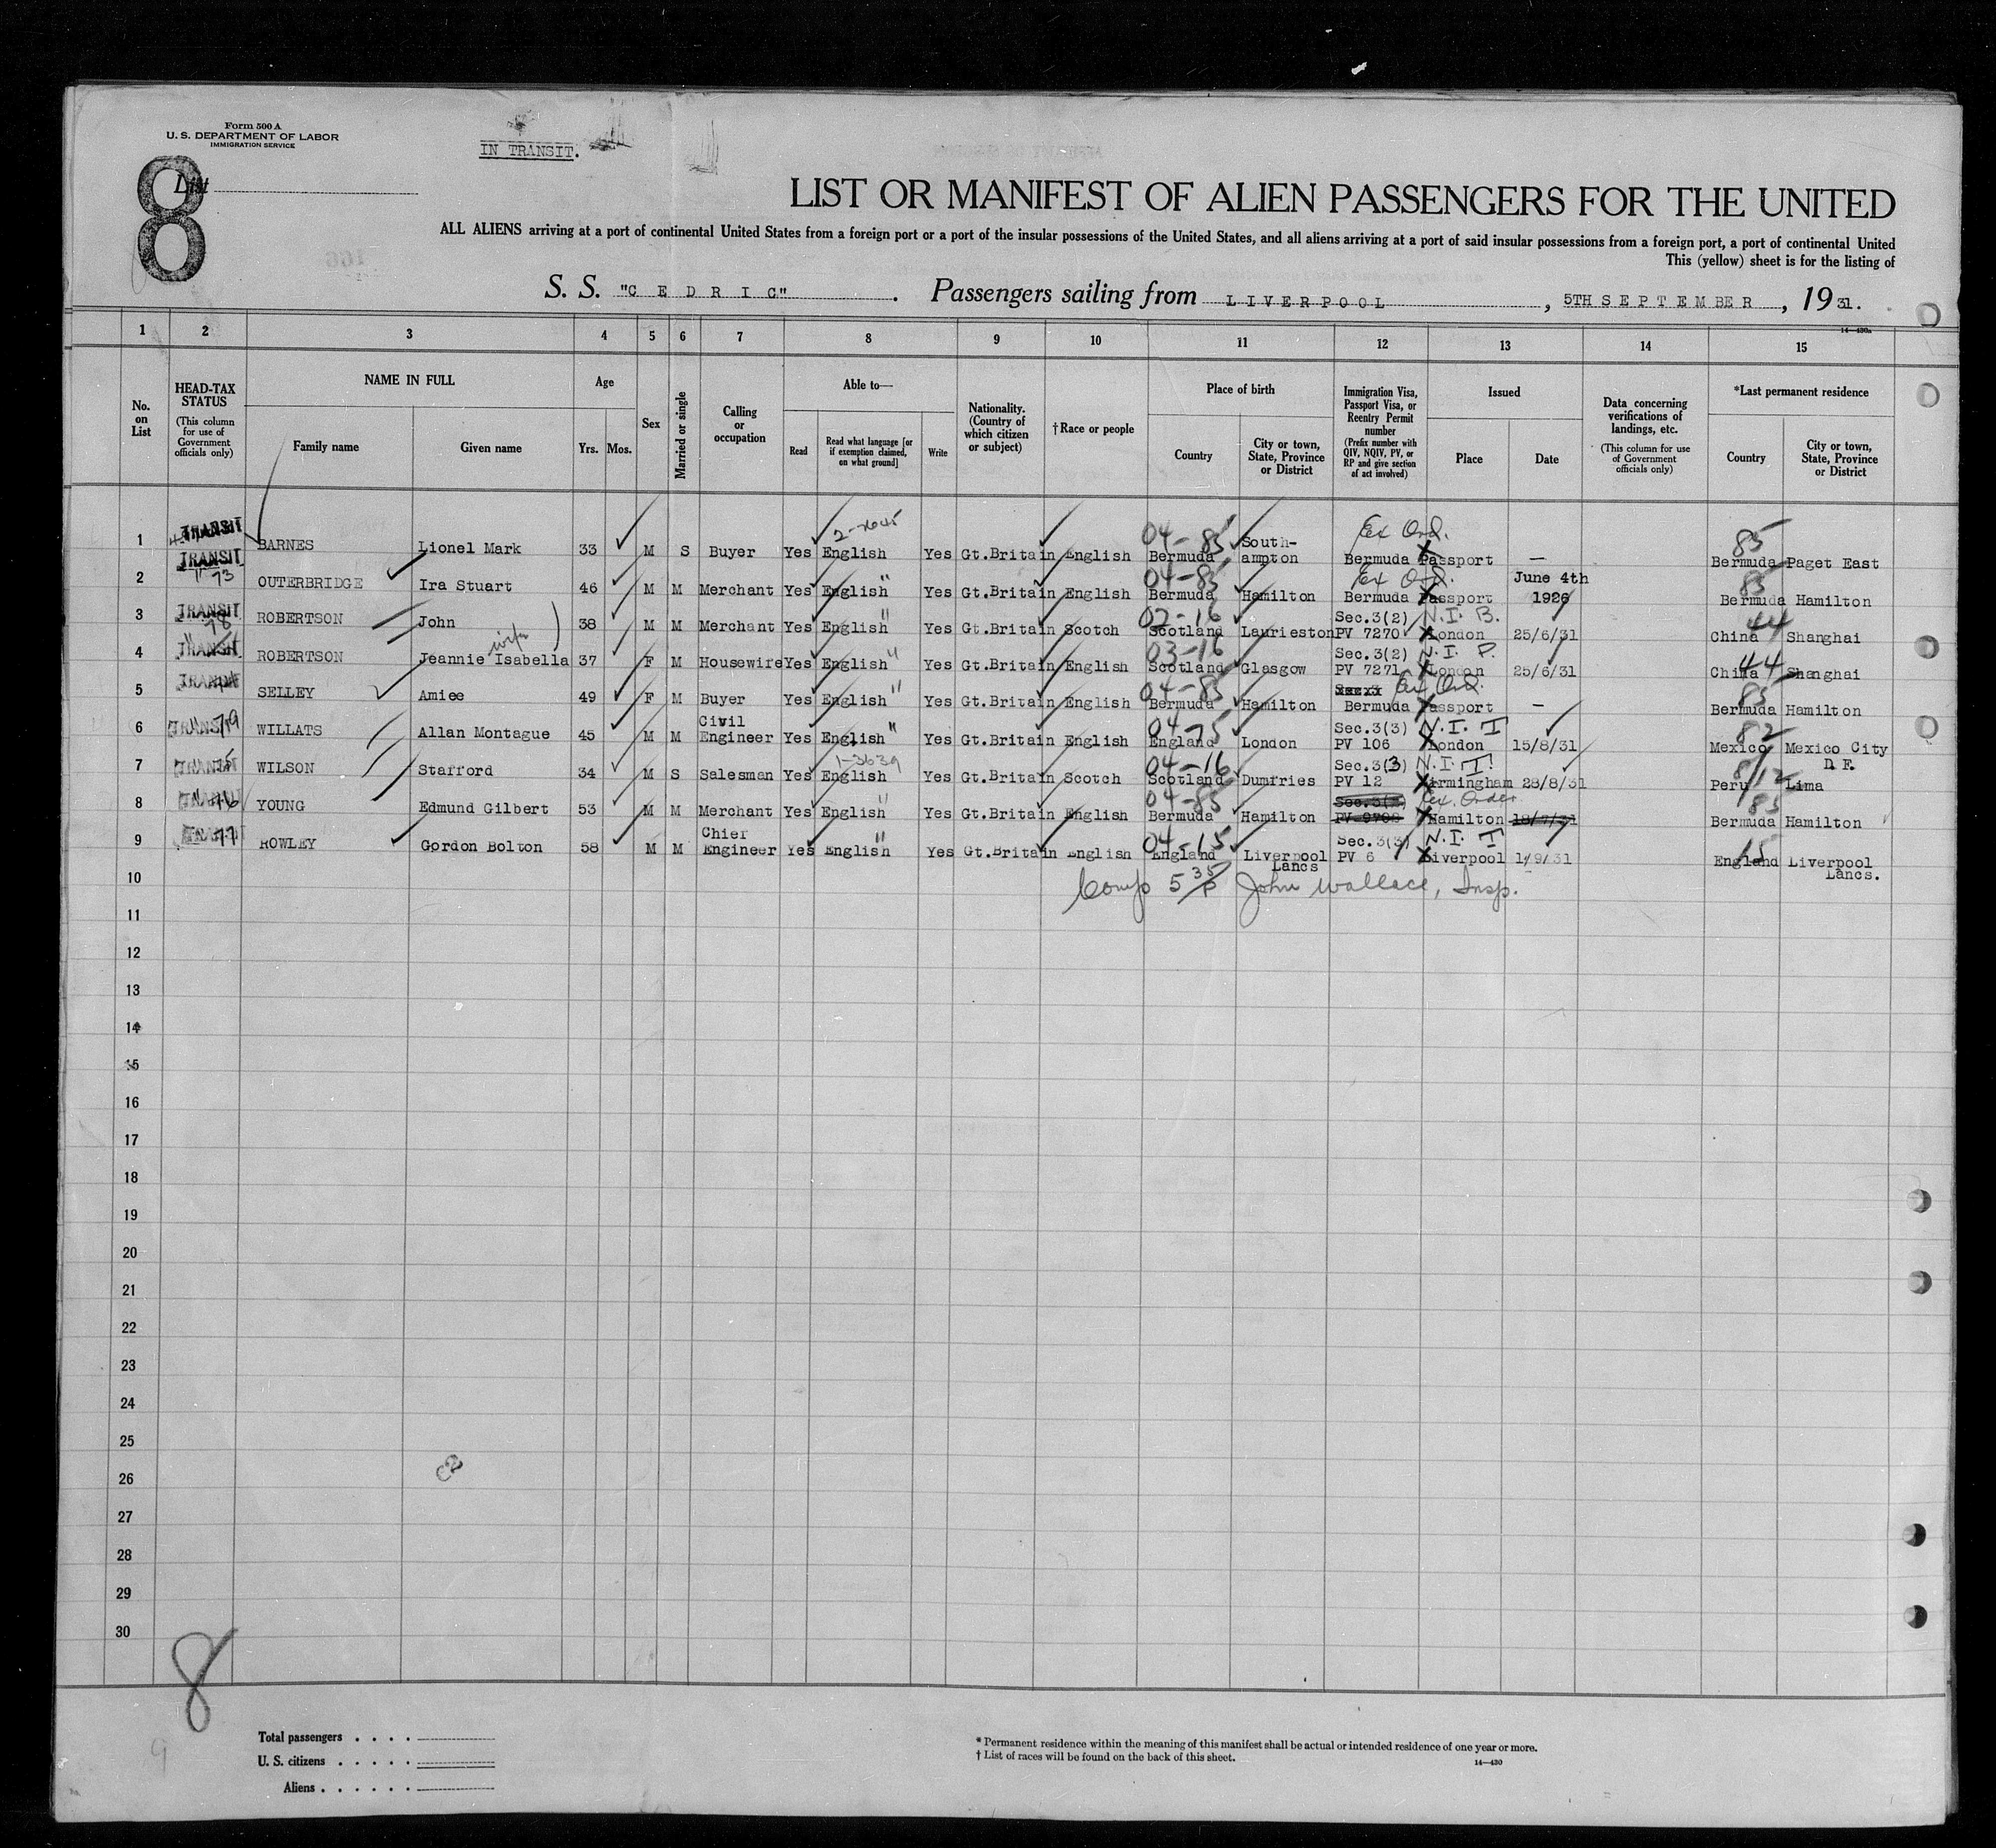 Form 500 A
U. S. DEPARTMENT OF LABOR
IMMIGRATION SERVICE
IN TRANSIT.
8
List
LIST OR MANIFEST OF ALIEN PASSENGERS FOR THE UNITED
ALL ALIENS arriving at a port of continental United States from a foreign port or a port of the insular possessions of the United States, and all aliens arriving at a port of said insular possessions from a foreign port, a port of continental United
This (yellow) sheet is for the listing of
S. S. "C E D R I C" . Passengers sailing from LIVERPOOL , 5TH SEPTEMBER , 19 31.
14—430a
1 2 3 4 5 6 7 8 9 10 11 12 13 14 15
No. on List
HEAD-TAX STATUS (This column for use of Government officials only)
NAME IN FULL
Family name Given name
Age
Yrs. Mos.
Sex
Married or single
Calling or occupation
Able to—
Read Read what language [or if exemption claimed, on what ground] Write
Nationality. (Country of which citizen or subject)
†Race or people
Place of birth
Country City or town, State, Province or District
Immigration Visa, Passport Visa, or Reentry Permit number (Prefix number with QIV, NQIV, PV, or RP and give section of act involved)
Issued
Place Date
Data concerning verifications of landings, etc. (This column for use of Government officials only)
*Last permanent residence
Country City or town, State, Province or District
TRANSIT 2-2645 04-85 South- Ex Ord. 85
1 BARNES Lionel Mark 33 M S Buyer Yes English Yes Gt.Britain English Bermuda ampton Bermuda Passport — Bermuda Paget East
TRANSIT " 73 04-85 Ex Ord. June 4th 85
2 OUTERBRIDGE Ira Stuart 46 M M Merchant Yes English " Yes Gt.Britain English Bermuda Hamilton Bermuda Passport 1926 Bermuda Hamilton
TRANSIT 78 02-16 Sec.3(2) N.I.B. 44
3 ROBERTSON John 38 M M Merchant Yes English " Yes Gt.Britain Scotch Scotland Laurieston PV 7270 London 25/6/31 China Shanghai
TRANSIT " wife 03-16 Sec.3(2) N.I.P. 44
4 ROBERTSON Jeannie Isabella 37 F M Housewire Yes English " Yes Gt.Britain English Scotland Glasgow PV 7271 London 25/6/31 China Shanghai
TRANSIT 04-85 Ex Ord. 85
5 SELLEY Amiee 49 F M Buyer Yes English " Yes Gt.Britain English Bermuda Hamilton Bermuda Passport — Bermuda Hamilton
TRANSIT " 79 Civil 04-75 Sec.3(3) N.I.T 82
6 WILLATS Allan Montague 45 M M Engineer Yes English " Yes Gt.Britain English England London PV 106 London 15/8/31 Mexico Mexico City
D F.
TRANSIT 1-3639 04-16 Sec.3(3) N.I.T. 8/12
7 WILSON Stafford 34 M S Salesman Yes English Yes Gt.Britain Scotch Scotland Dumfries PV 12 Birmingham 28/8/31 Peru Lima
TRANSIT " 76 04-85 Sec.3(2) Ex. Order 85
8 YOUNG Edmund Gilbert 53 M M Merchant Yes English " Yes Gt.Britain English Bermuda Hamilton PV 9708 Hamilton 18/7/31 Bermuda Hamilton
TRANSIT 77 Chief 04-15 Sec.3(3) N.I.T 15
9 ROWLEY Gordon Bolton 58 M M Engineer Yes English " Yes Gt.Britain English England Liverpool PV 6 Liverpool 1/9/31 England Liverpool
Lancs Lancs.
10 Comp 5 35/P John Wallace, Insp.
11
12
13
14
15
16
17
18
19
20
21
22
23
24
25
26
27
28
29
30
8
9
Total passengers . . . .
U. S. citizens . . . . .
Aliens . . . . . .
* Permanent residence within the meaning of this manifest shall be actual or intended residence of one year or more.
† List of races will be found on the back of this sheet.
14—430